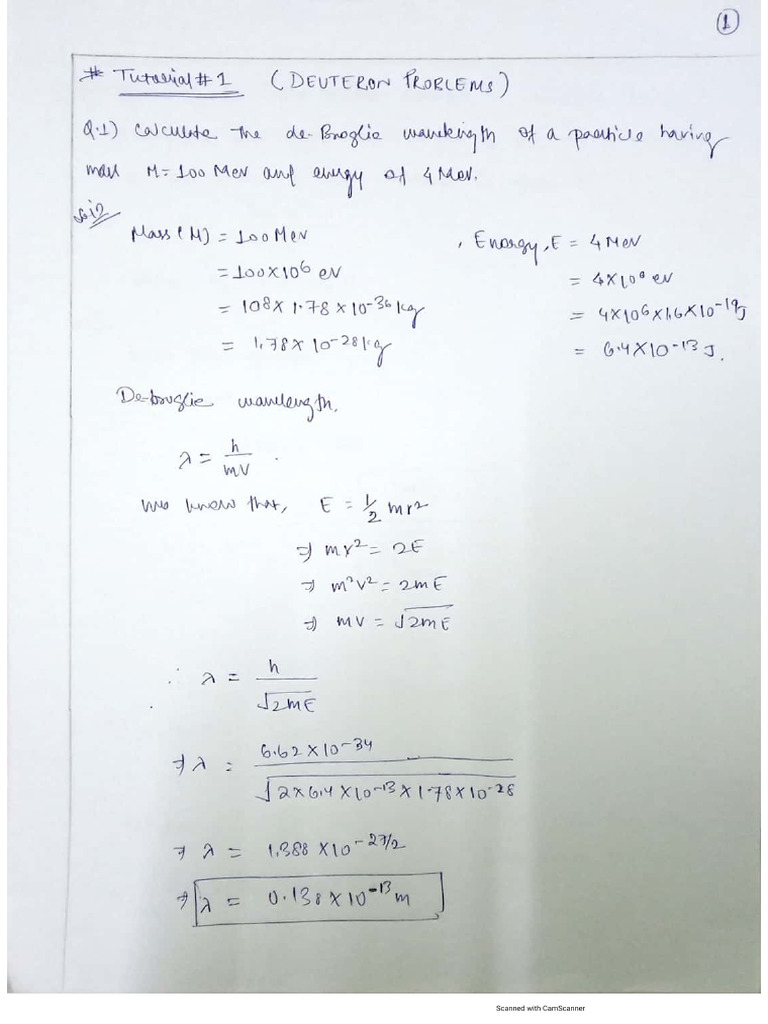 ①
# Tutorial # 1 (DEUTERON PROBLEMS)
Q.1) Calculate the de-Broglie wavelength of a particle having
mass M = 100 Mev and energy of 4 Mev.
Mass (M) = 100 Mev , Energy, E = 4 MeV
= 100 × 10⁶ ev = 4 × 10⁶ ev
= 10⁸ × 1.78 × 10⁻³⁶ kg = 4 × 10⁶ × 1.6 × 10⁻¹⁹ J
= 1.78 × 10⁻²⁸ kg = 6.4 × 10⁻¹³ J.
De-broglie wavelength,
λ = h / mv .
we know that, E = 1/2 mv²
⇒ mv² = 2E
⇒ m²v² = 2mE
⇒ mv = √2mE
∴ λ = h / √2mE
⇒ λ = 6.62 × 10⁻³⁴ / √2 × 6.4 × 10⁻¹³ × 1.78 × 10⁻²⁸
⇒ λ = 1.388 × 10⁻²⁷/²
⇒ λ = 0.138 × 10⁻¹³ m
Scanned with CamScanner